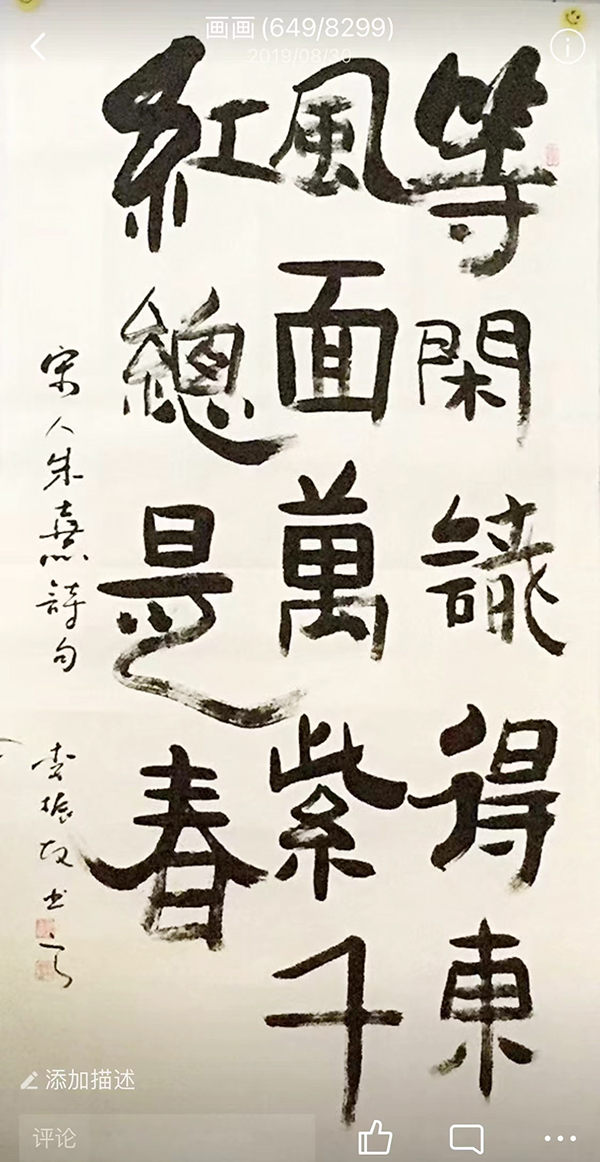 画画 (649/8299)
2019/08/30
等閑識得東
風面萬紫千
紅總是春
宋人朱熹詩句
李振
添加描述
评论